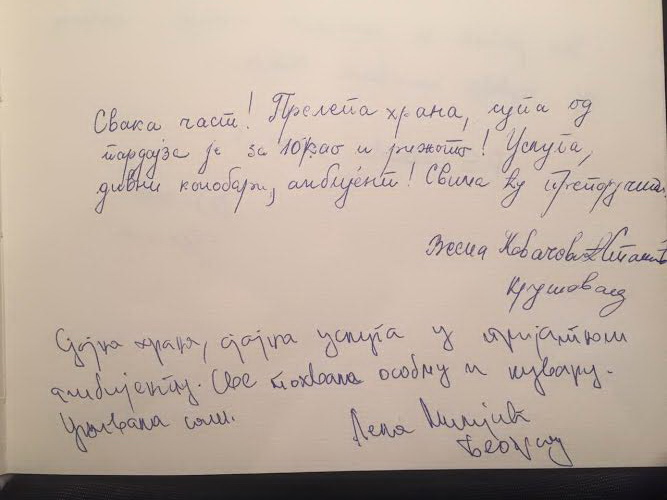 Свака част! Прелепа храна, супа од
парадајза је за 10 као и рижото! Услуга,
дивни конобари, амбијент! Свима ћу препоручити
Весна Ковачевић
Крушевац
Сјајна храна, сјајна услуга у пријатном
амбијенту. Све похвале особљу и кувару.
Уживала сам.
Лепа
Београд